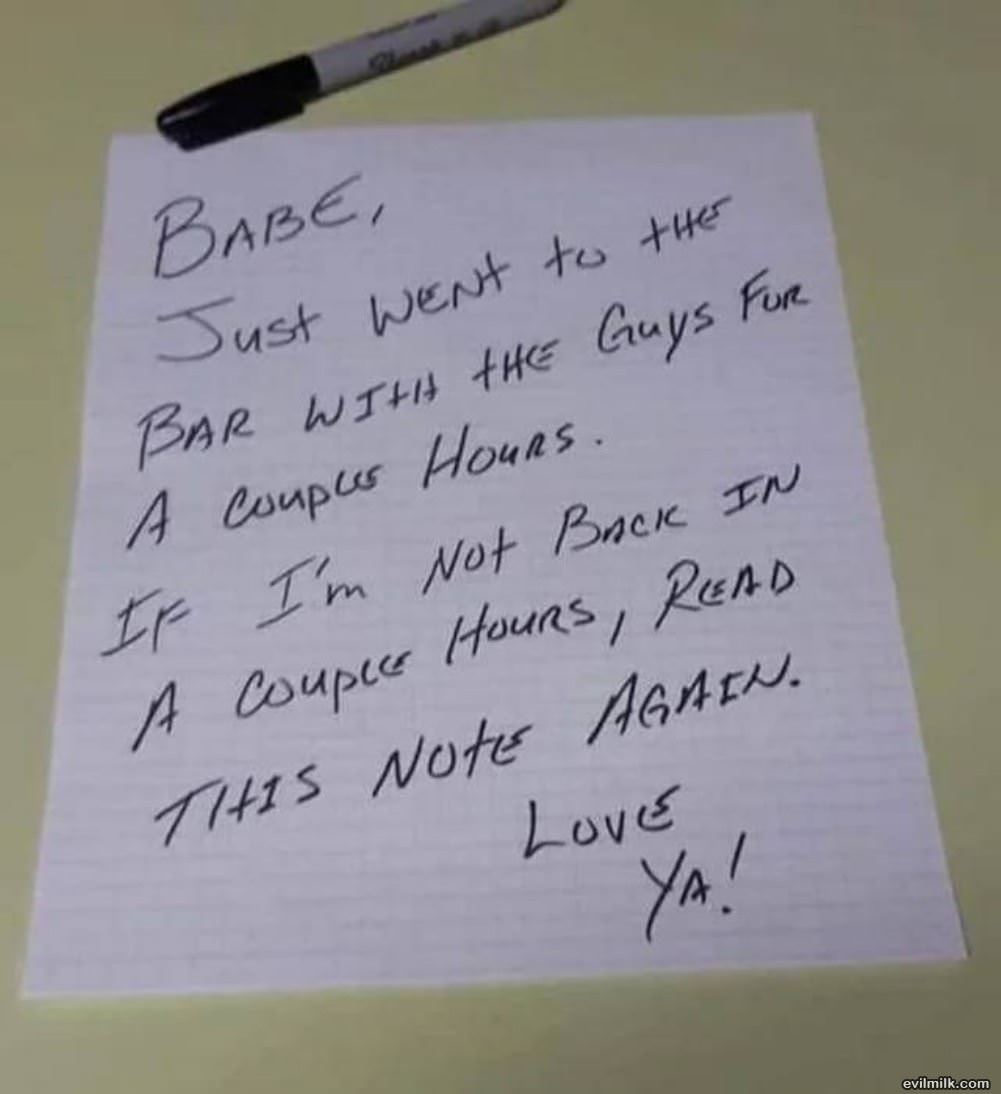 BABE,
JUST WENT TO THE
BAR WITH THE GUYS FOR
A COUPLE HOURS.
IF I'm NOT BACK IN
A COUPLE HOURS, READ
THIS NOTE AGAIN.
LOVE
YA!
evilmilk.com